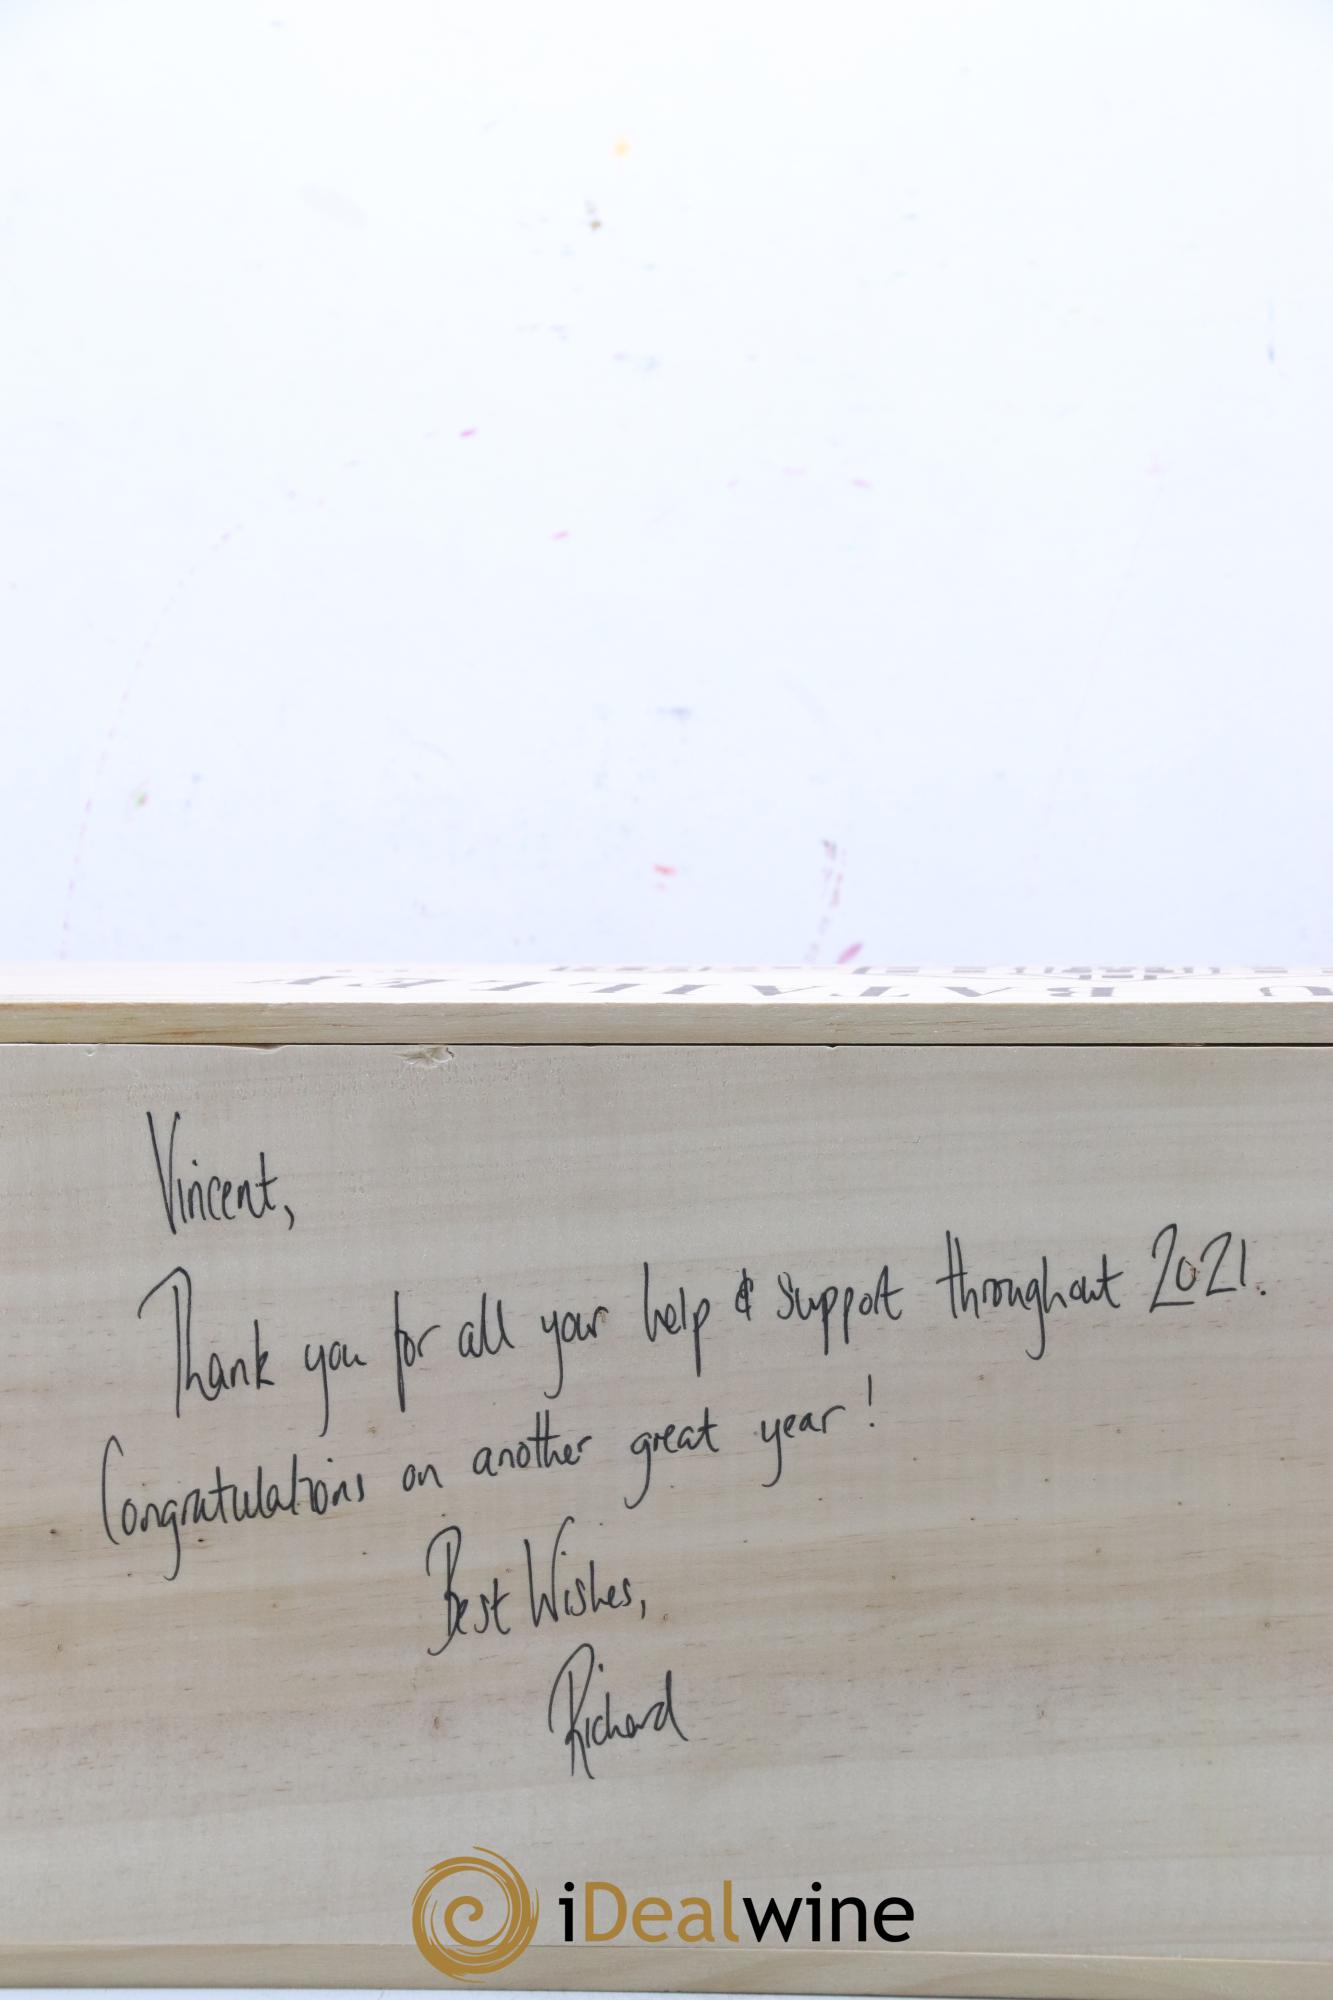 U BATAILLEY
Vincent,
Thank you for all your help & support throughout 2021.
Congratulations on another great year!
Best Wishes,
Richard
iDealwine